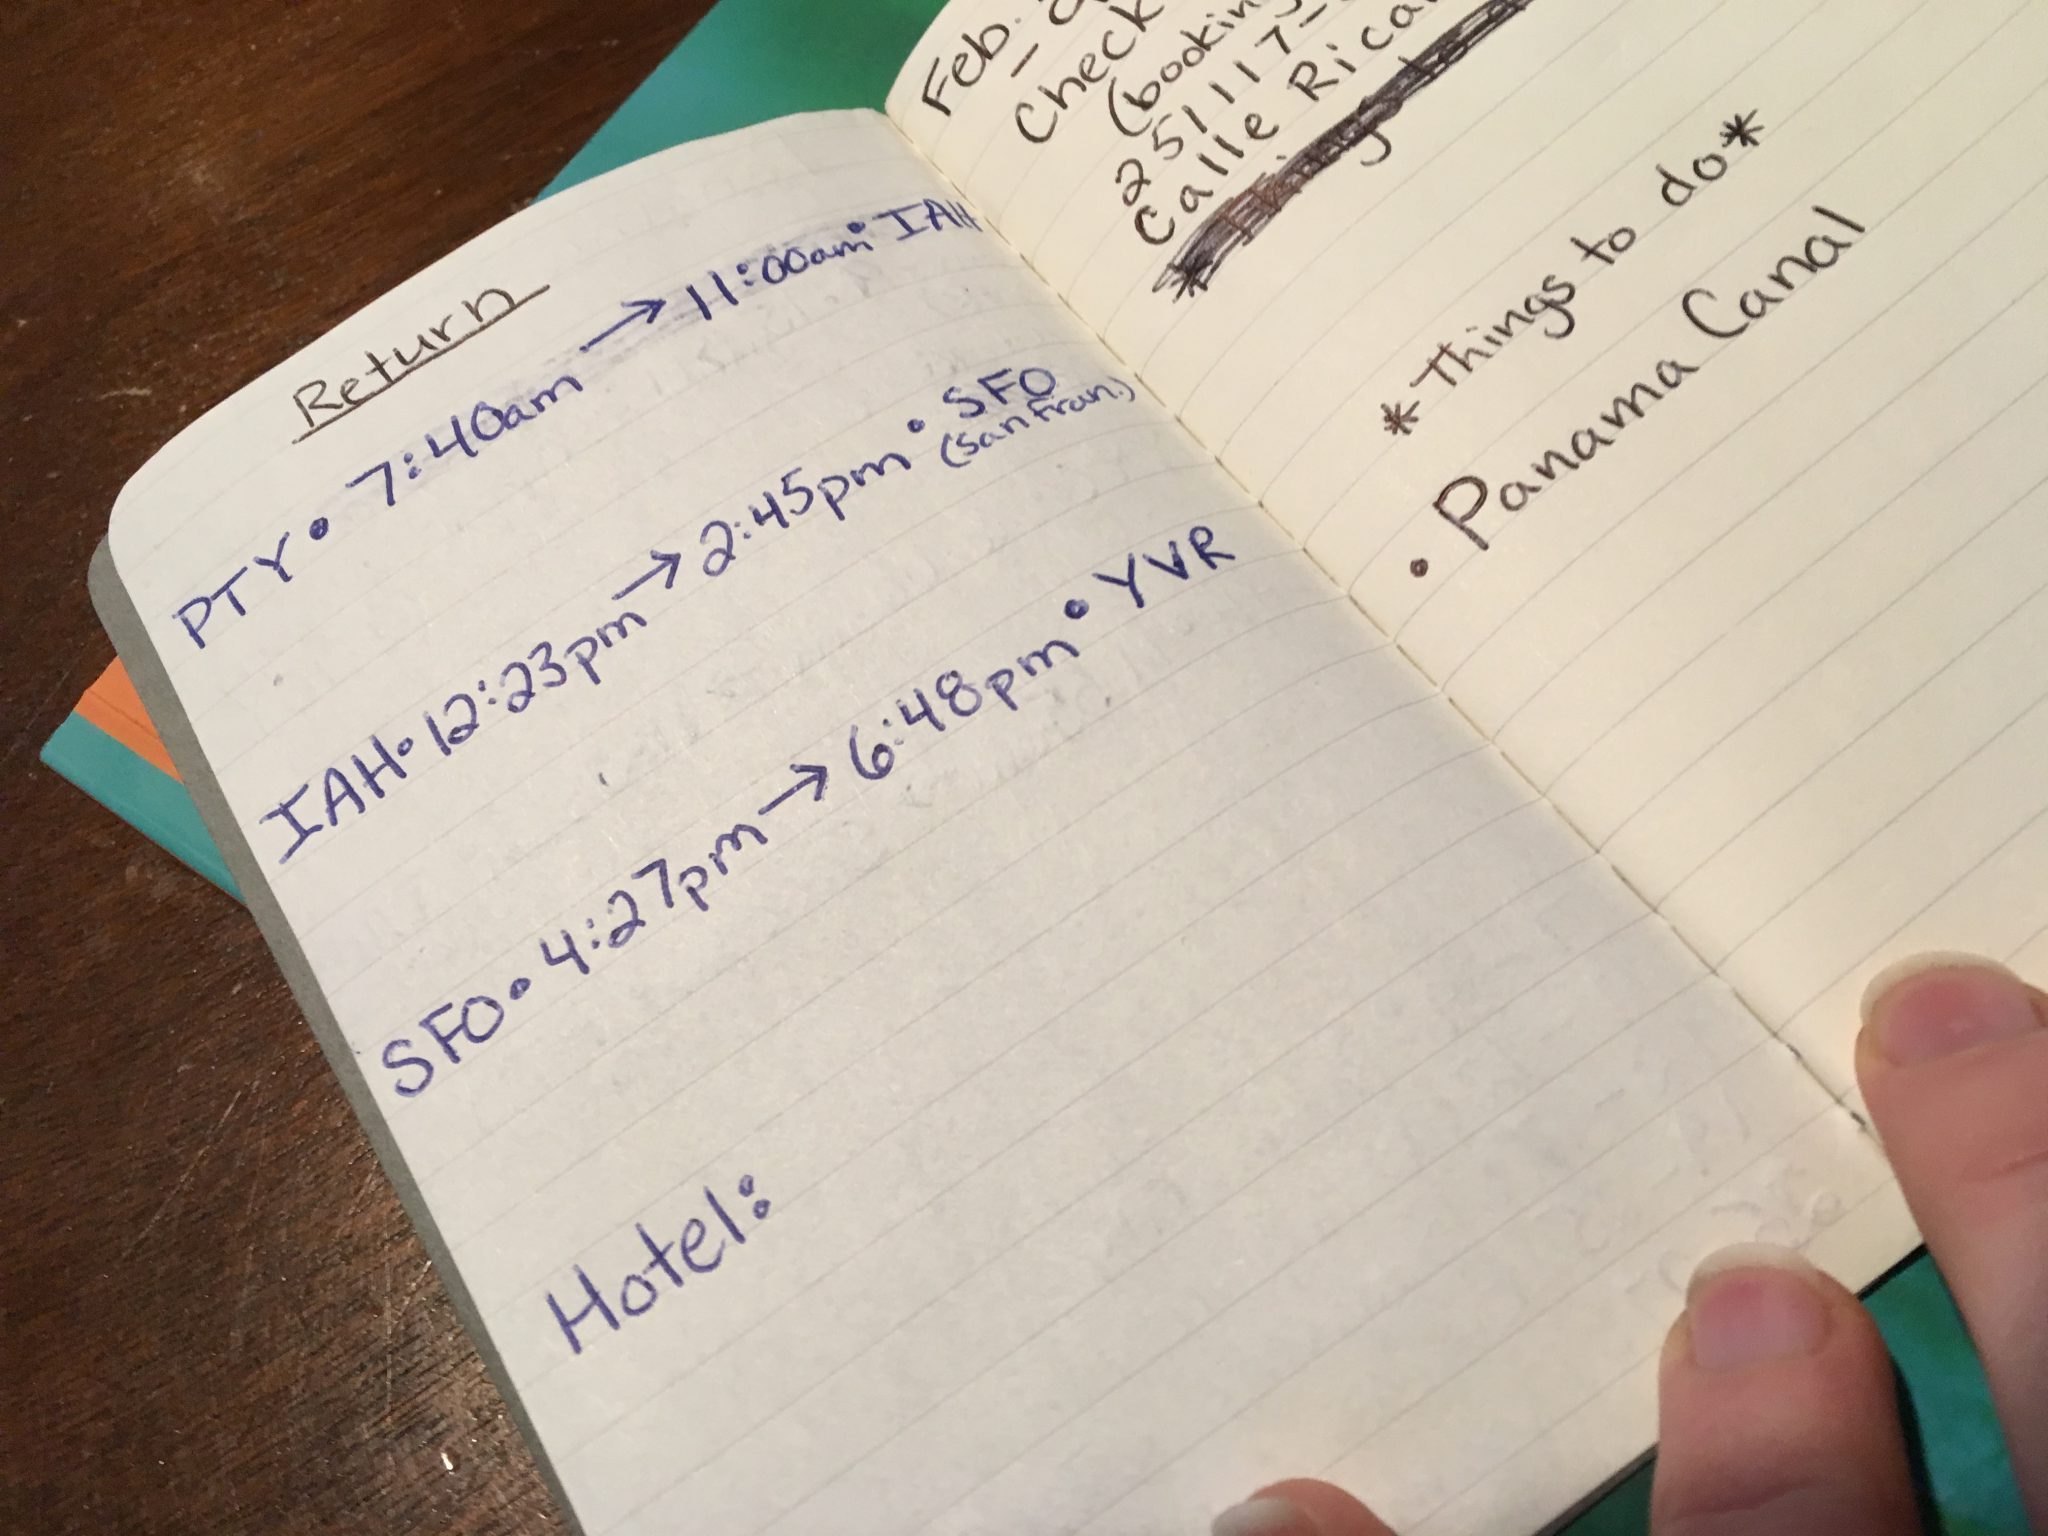 Return
PTY • 7:40am → 11:00am • IAH
IAH • 12:23pm → 2:45pm • SFO
(San Fran.)
SFO • 4:27pm → 6:48pm • YVR
Hotel:
Feb.
Check
(booking
251117-
Calle
*
*Things to do*
• Panama Canal